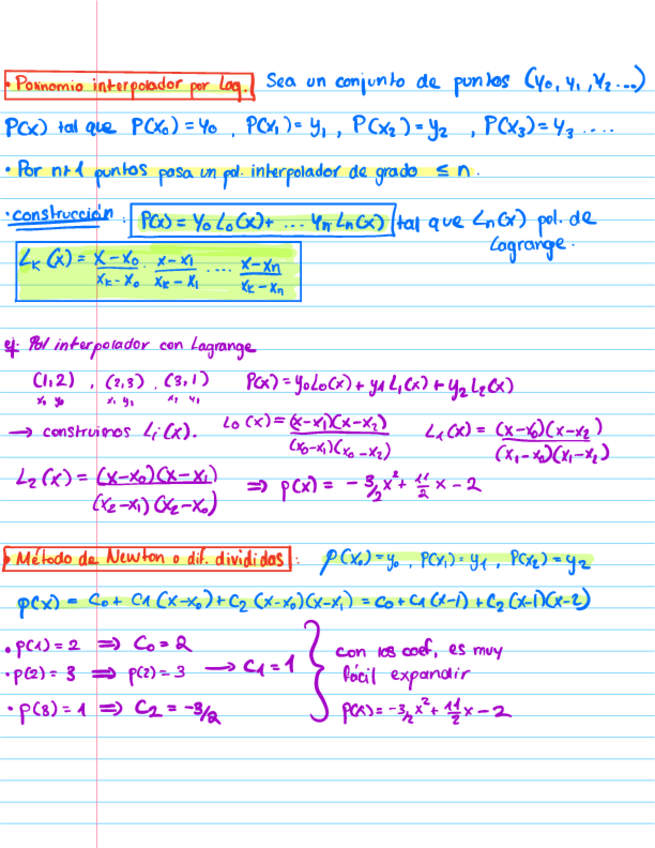 • Polinomio interpolador por Lag. Sea un conjunto de puntos (y₀, y₁, y₂ ...)
P(x) tal que P(x₀) = y₀ , P(x₁) = y₁ , P(x₂) = y₂ , P(x₃) = y₃ ....
• Por n+1 puntos pasa un pol. interpolador de grado ≤ n.
• construcción : P(x) = y₀ L₀(x) + ... yₙ Lₙ(x) tal que Lₙ(x) pol. de
Lagrange.
Lₖ(x) = (x-x₀)/(xₖ-x₀) · (x-x₁)/(xₖ-x₁) .... (x-xₙ)/(xₖ-xₙ)
ej: Pol interpolador con Lagrange
(1,2) , (2,3) , (3,1) P(x) = y₀L₀(x) + y₁L₁(x) + y₂L₂(x)
x₀ y₀ x₁ y₁ x₂ y₂
→ construimos Lᵢ(x). L₀(x) = (x-x₁)(x-x₂)/(x₀-x₁)(x₀-x₂) L₁(x) = (x-x₀)(x-x₂)/(x₁-x₀)(x₁-x₂)
L₂(x) = (x-x₀)(x-x₁)/(x₂-x₁)(x₂-x₀) ⇒ p(x) = -3/2x² + 11/2x - 2
• Método de Newton o dif. divididas : p(x₀) = y₀ , P(x₁) = y₁ , P(x₂) = y₂
p(x) = c₀ + c₁(x-x₀) + c₂(x-x₀)(x-x₁) = c₀ + c₁(x-1) + c₂(x-1)(x-2)
• p(1) = 2 ⇒ c₀ = 2
• p(2) = 3 ⇒ p(2) = 3 → c₁ = 1
• p(3) = 1 ⇒ c₂ = -3/2
con los coef, es muy
fácil expandir
p(x) = -3/2x² + 11/2x - 2